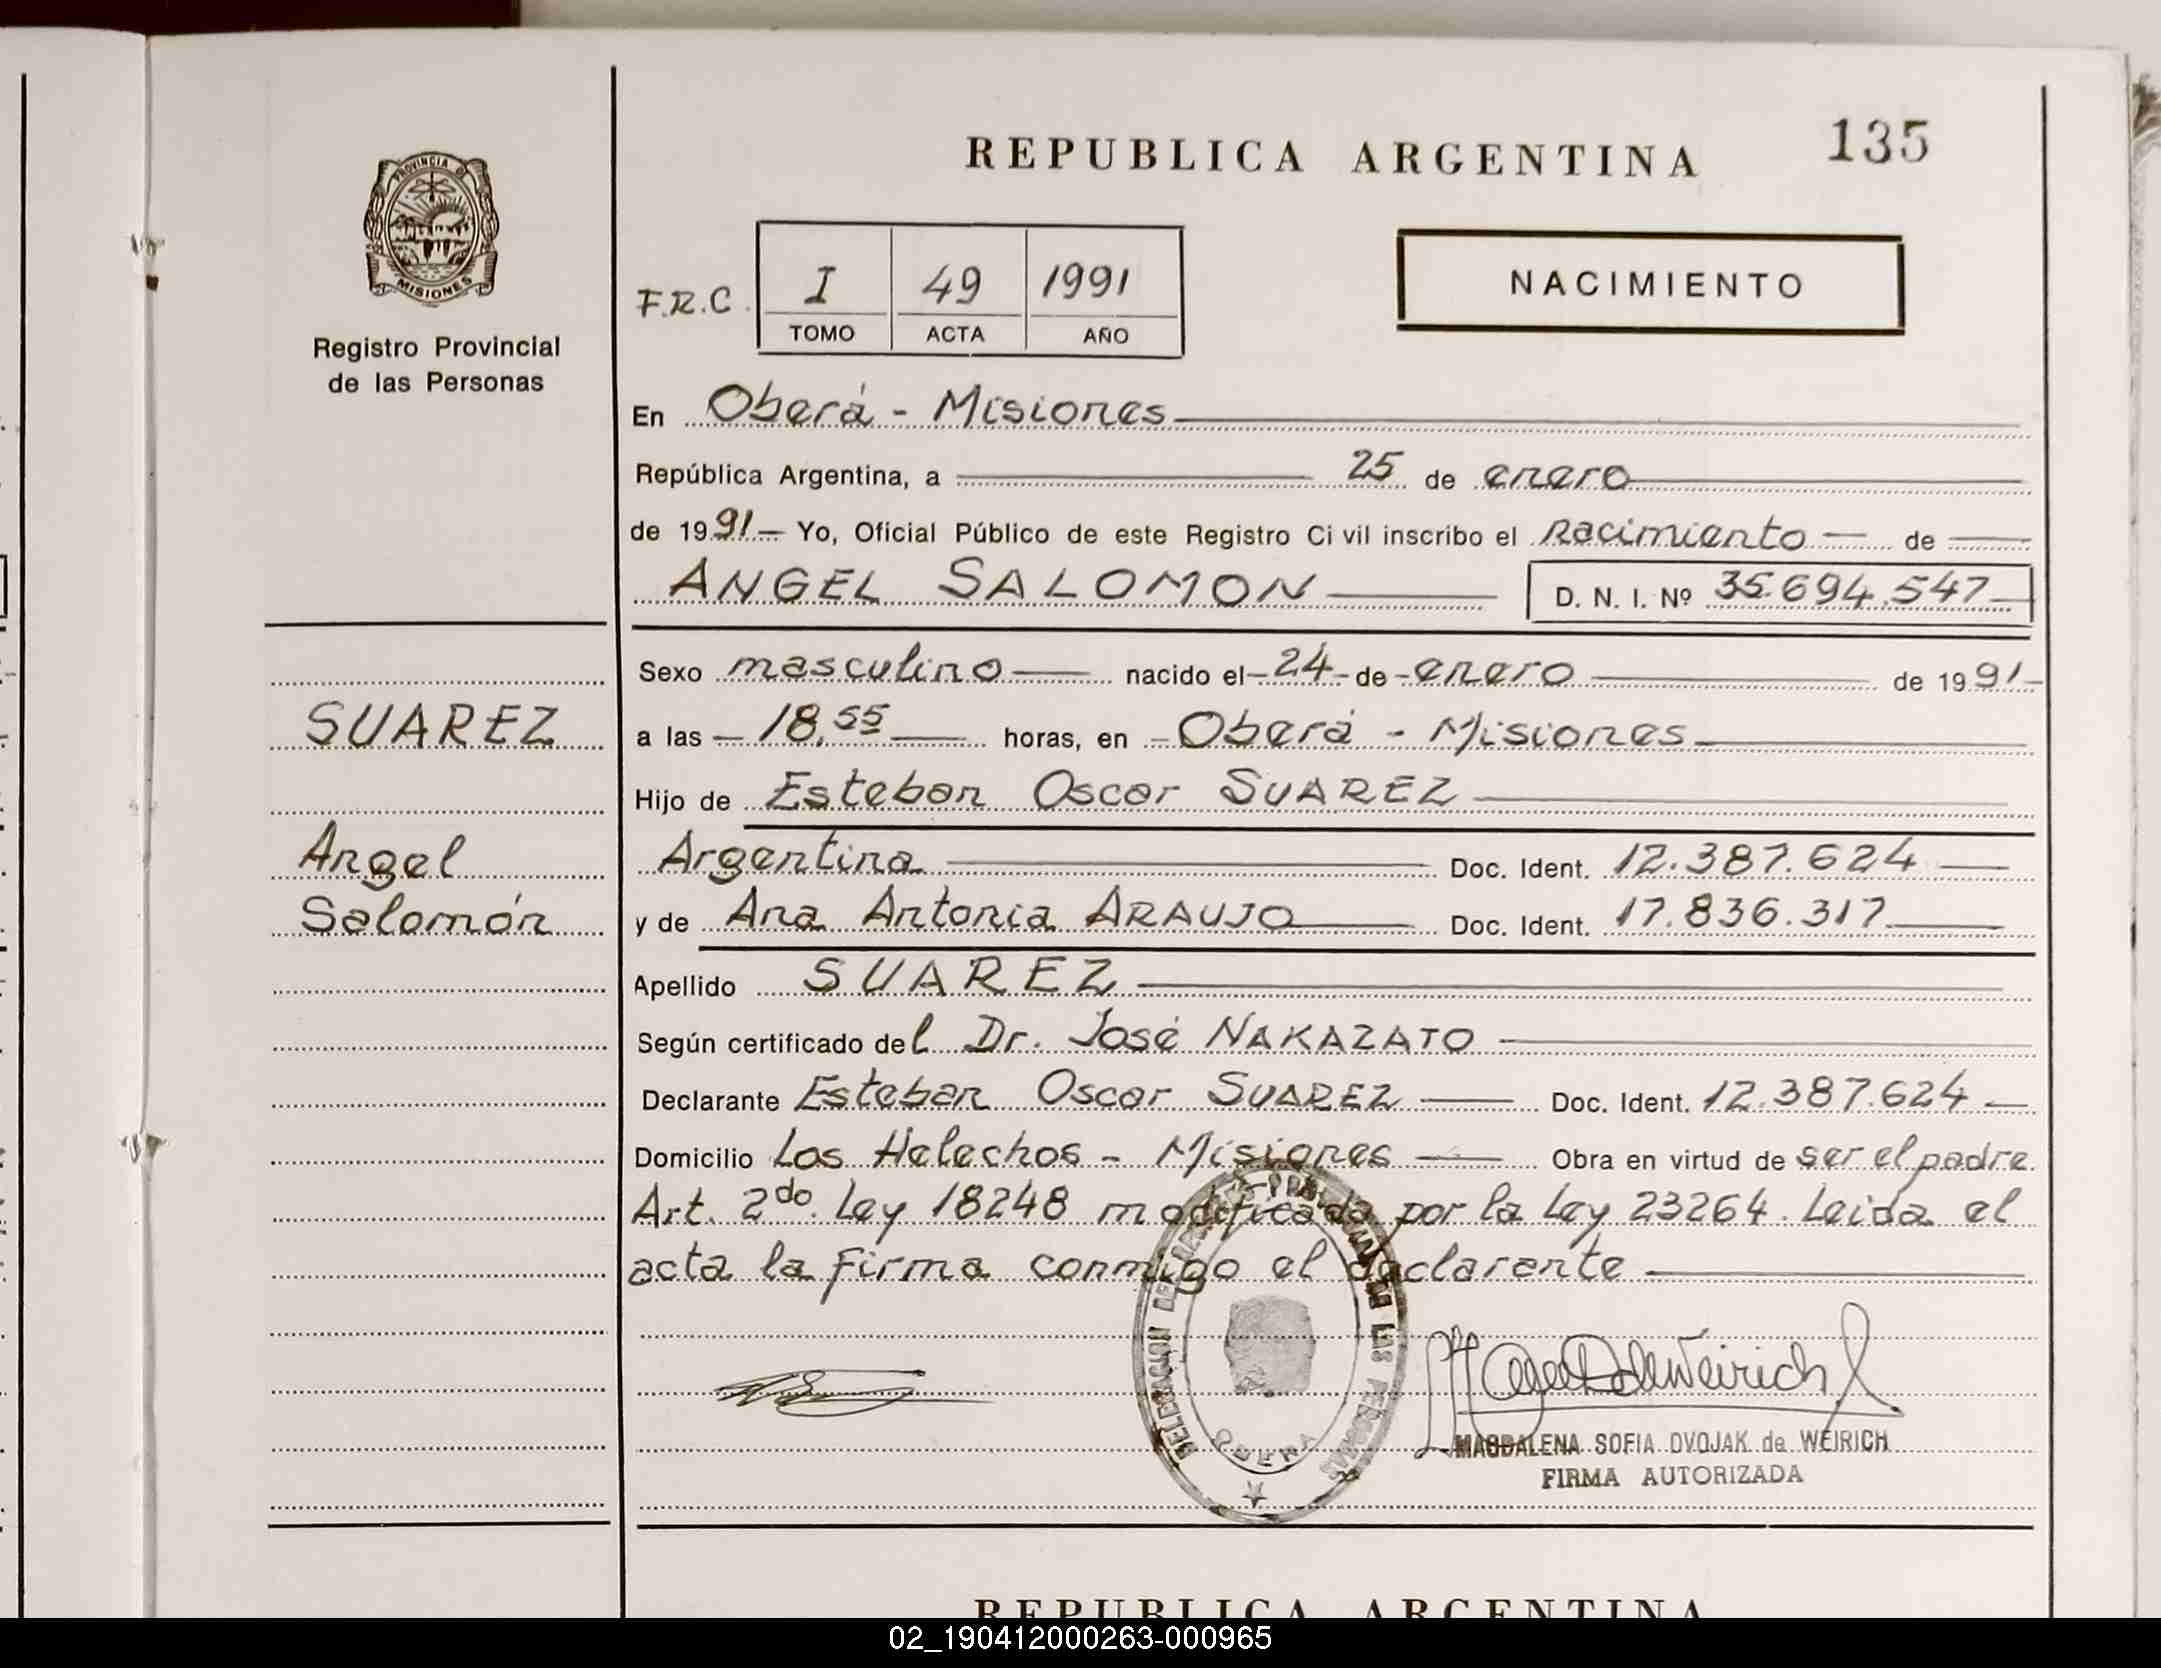 REPUBLICA ARGENTINA
135
PROVINCIA DE
MISIONES
Registro Provincial
de las Personas
F.R.C. I 49 1991
TOMO ACTA AÑO
NACIMIENTO
En Oberá - Misiones
República Argentina, a 25 de enero
de 1991 - Yo, Oficial Público de este Registro Civil inscribo el nacimiento de
ANGEL SALOMON D. N. I. Nº 35.694.547
Sexo masculino nacido el 24 de enero de 1991
a las 18,55 horas, en Oberá - Misiones
Hijo de Esteban Oscar SUAREZ
Argentina Doc. Ident. 12.387.624
y de Ana Antonia ARAUJO Doc. Ident. 17.836.317
Apellido SUAREZ
Según certificado del Dr. José NAKAZATO
Declarante Esteban Oscar SUAREZ Doc. Ident. 12.387.624
Domicilio Los Helechos - Misiones Obra en virtud de ser el padre
Art. 2do. Ley 18248 modificada por la Ley 23264. Leida el
acta la firma conmigo el declarante
SUAREZ
Angel
Salomón
DELEGACION DE LAS PERSONAS
OBERA
MAGDALENA SOFIA DVOJAK de WEIRICH
FIRMA AUTORIZADA
REPUBLICA ARGENTINA
02_190412000263-000965